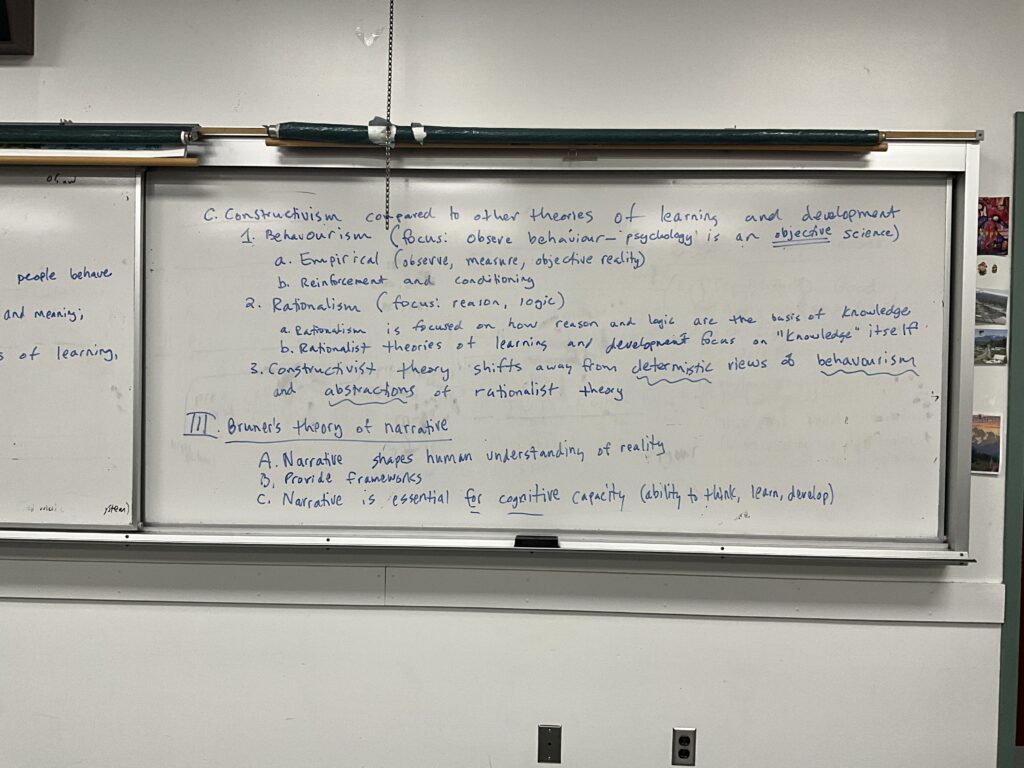 people behave
and meaning;
s of learning,
ystem)
C. Constructivism compared to other theories of learning and development
1. Behavourism (focus: obseve behaviour – psychology is an objective science)
a. Empirical (observe, measure, objective reality)
b. Reinforcement and conditioning
2. Rationalism (focus: reason, logic)
a. Rationalism is focused on how reason and logic are the basis of Knowledge
b. Rationalist theories of learning and development focus on "Knowledge" itself
3. Constructivist theory shifts away from determistic views of behavourism
and abstractions of rationalist theory
III. Bruner's theory of narrative
A. Narrative shapes human understanding of reality
B. Provide frameworks
C. Narrative is essential for cognitive capacity (ability to think, learn, develop)